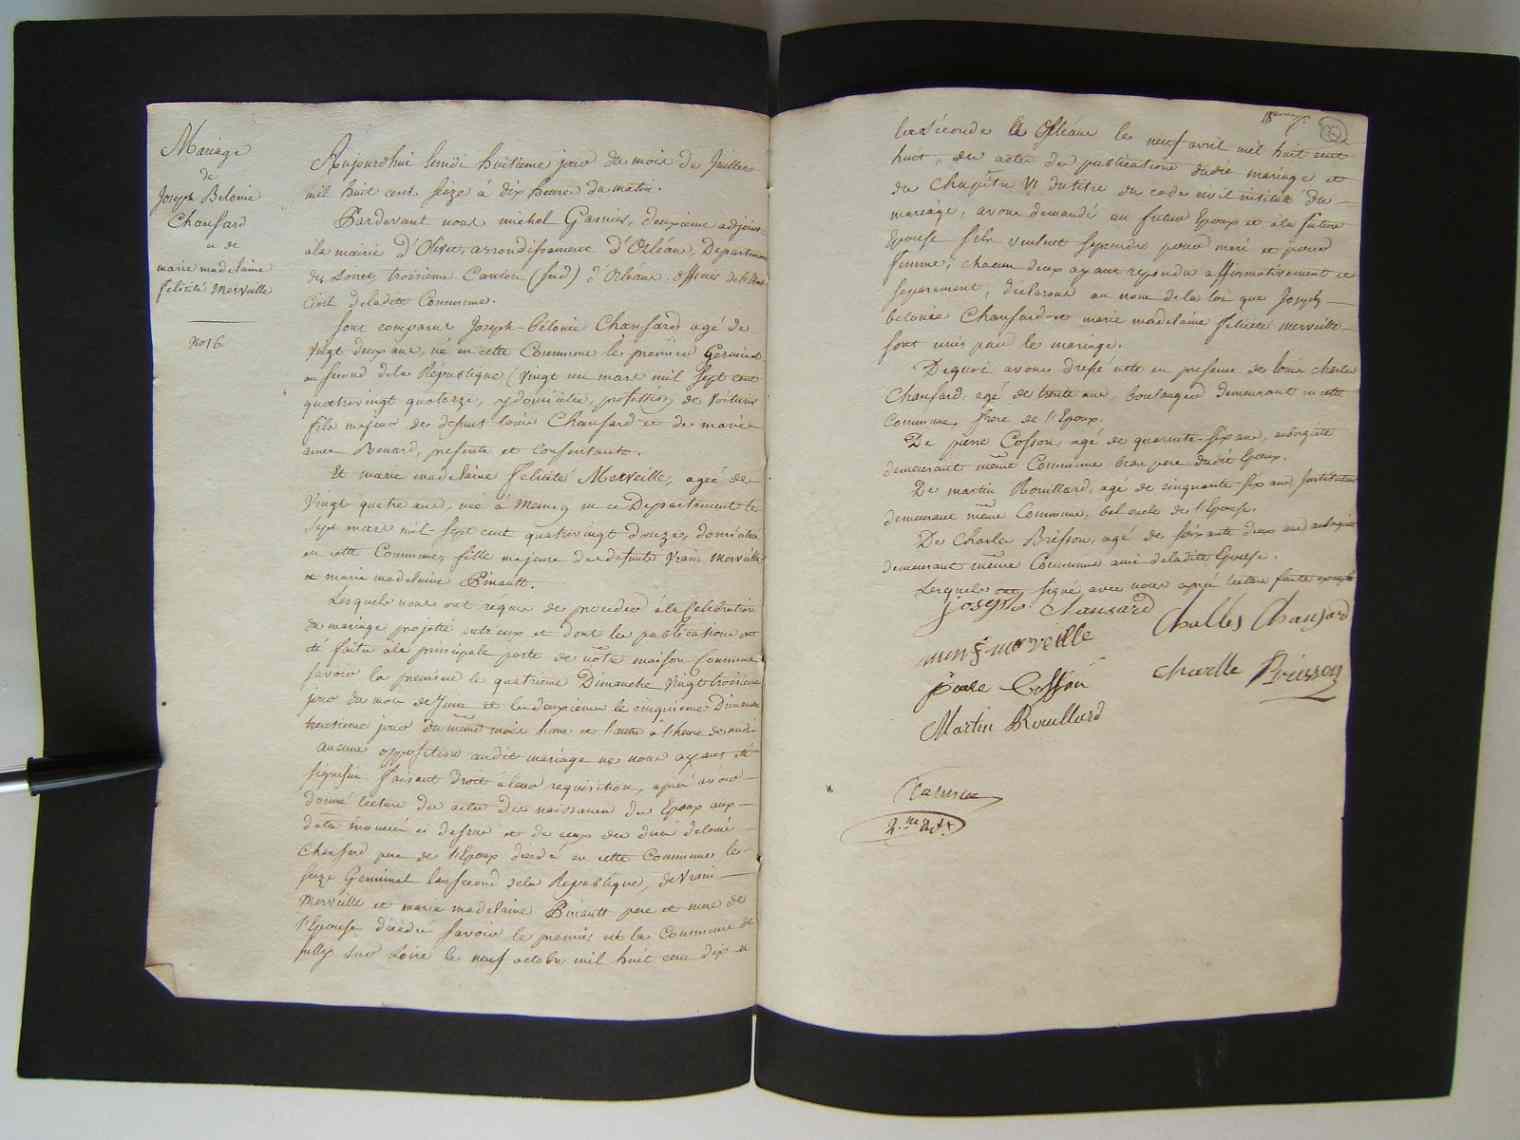 Mariage
de
Joseph Belonie
Chaufard
et de
marie madelaine
felicité Merveille
No 16
Aujourdhui lundi huitieme jour du mois de Juillet
mil huit cent seize a dix heures du matin.
Pardevant nous michel Garnier, deuxieme adjoint
à la mairie d'Olivet, arrondissement d'Orléans, Departement
du Loiret, troisieme Canton (sud) d'Orleans officier de l'Etat
Civil de ladite Commune.
Sont comparus Joseph belonie Chaufard agé de
vingt deux ans, né en cette Commune le premier Germinal
an second de la République (vingt un mars mil sept cent
quatrevingt quatorze, y domicilié, profession de voiturier
fils majeur de defunt Chaufard et de marie
anne Renard, presente et consentante.
Et marie madelaine felicité Merveille, agée de
Vingt quatre ans, née à Meung en ce Departement le
Sept mars mil sept cent quatrevingt douze, domiciliée
en cette Commune, fille majeure de defunts Vrain Merveille
et marie madelaine Pinault.
Lesquels nous ont requis de proceder à la Celebration
du mariage projetté entre eux et dont les publications ont
été faites à la principale porte de notre maison Commune
savoir la premiere le quatrieme Dimanche vingt troisieme
jour du mois de Juin et la deuxieme le cinquieme Dimanche
trentieme jour du même mois l'une et l'autre à l'heure de midi
aucune opposition audit mariage ne nous ayant été
signifiée faisant droit à leur requisition, après avoir
donné lecture des actes de naissances des Epoux aux
dates énoncées ci dessus et de ceux de décès de
Chaufard pere de l'Epoux decedé en cette Commune le
seize Germinal an second de la République, de Vrain
Merveille et marie madelaine Pinault pere et mere de
l'Epouse decedés savoir le premier en la Commune de
sully sur Loire le neuf octobre mil huit cent dix et
la seconde à Orléans le neuf avril mil huit cent
huit, des actes de publications dudit mariage et
du Chapitre VI du titre du code civil intitulé du
mariage, avons demandé au futur Epoux et à la future
Epouse s'ils veulent se prendre pour mari et pour
femme; chacun d'eux ayant repondu affirmativement et
separement, declarons au nom de la loi que Joseph
belonie Chaufard et marie madelaine felicité merveille
sont unis par le mariage.
De quoi avons dressé acte en presence de louis charles
Chaufard, agé de trente ans, boulanger demeurant en cette
Commune, frere de l'Epoux.
De pierre Cosson agé de quarante six ans, aubergiste
demeurant même Commune beau pere dudit Epoux.
De martin Rouillard, agé de cinquante six ans Instituteur
demeurant même Commune, bel oncle de l'Epouse.
De Charles Brisson, agé de soixante deux ans aubergiste
demeurant même Commune ami de ladite Epouse.
Lesquels ont signé avec nous après lecture faite
joseph Chausard
Challes Chaufard
m m f merveille
Cosson
charlle Brisson
Martin Rouillard
Garnier
2.me adjt